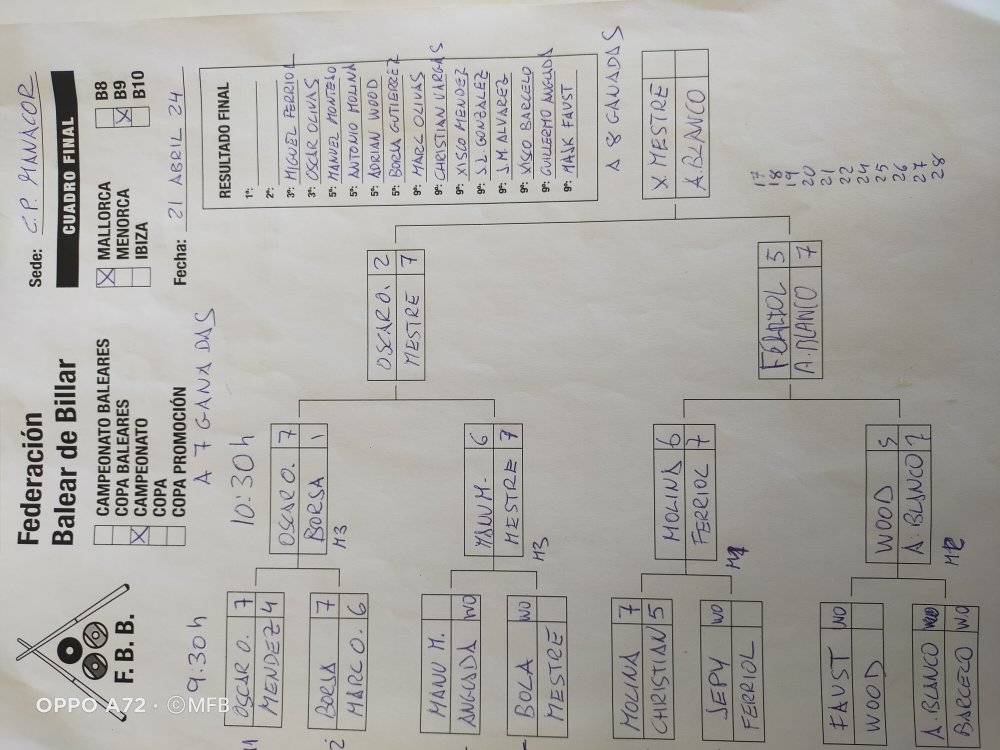 F. B. B.
Federación
Balear de Billar
CAMPEONATO BALEARES
COPA BALEARES
CAMPEONATO
COPA
COPA PROMOCIÓN
Sede: C.P. MANACOR
CUADRO FINAL
MALLORCA
MENORCA
IBIZA
B8
B9
B10
Fecha: 21 ABRIL 24
9:30 h
10:30 h
A 7 GANADAS
RESULTADO FINAL
1º:
2º:
3º: MIGUEL FERRIOL
3º: OSCAR OLIVAS
5º: MANUEL MONTERO
5º: ANTONIO MOLINA
5º: ADRIAN WOOD
5º: BORSA GUTIERREZ
9º: MARC OLIVAS
9º: CHRISTIAN VARGAS
9º: XISCO MENDEZ
9º: S.L. GONZALEZ
9º: J.M ALVAREZ
9º: XISCO BARCELO
9º: GUILLERMO ANGUADA
9º: MAIK FAUST
A 8 GANADAS
OSCAR O. 7
MENDEZ 4
BORSA 7
MARC O. 6
MANU M.
ANGUADA WO
BOLA WO
MESTRE
MOLINA 7
CHRISTIAN 5
SEPY WO
FERRIOL
FAUST WO
WOOD
A. BLANCO
BARCELO W.O
OSCAR O. 7
BORSA 1
M3
MANU M. 6
MESTRE 7
M3
MOLINA 6
FERRIOL 7
WOOD 5
A. BLANCO 7
OSCAR O. 2
MESTRE 7
FERRIOL 5
A. BLANCO 7
X. MESTRE
A. BLANCO
17
18
19
20
21
22
24
25
26
27
28
OPPO A72 · ©MFB